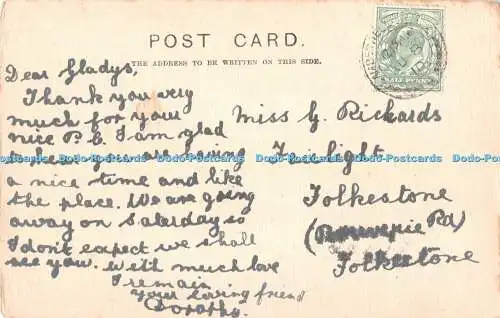 POST CARD.
THE ADDRESS TO BE WRITTEN ON THIS SIDE.
HALF PENNY
Dear Gladys,
Thank you very
much for your
nice P.C. I am glad
to hear you are having
a nice time and like
the place. We are going
away on Saterday so
I don't expect we shall
see you. With much love
I remain
your loving friend
Dorothy.
Miss G. Rickards
Fairlight
Folkestone
(Bouverie Rd)
Folkestone
Dodo-Postcards Dodo-Postcards Dodo-Postcards Dodo-Postcards Dodo-Postcards Dodo-Postcards